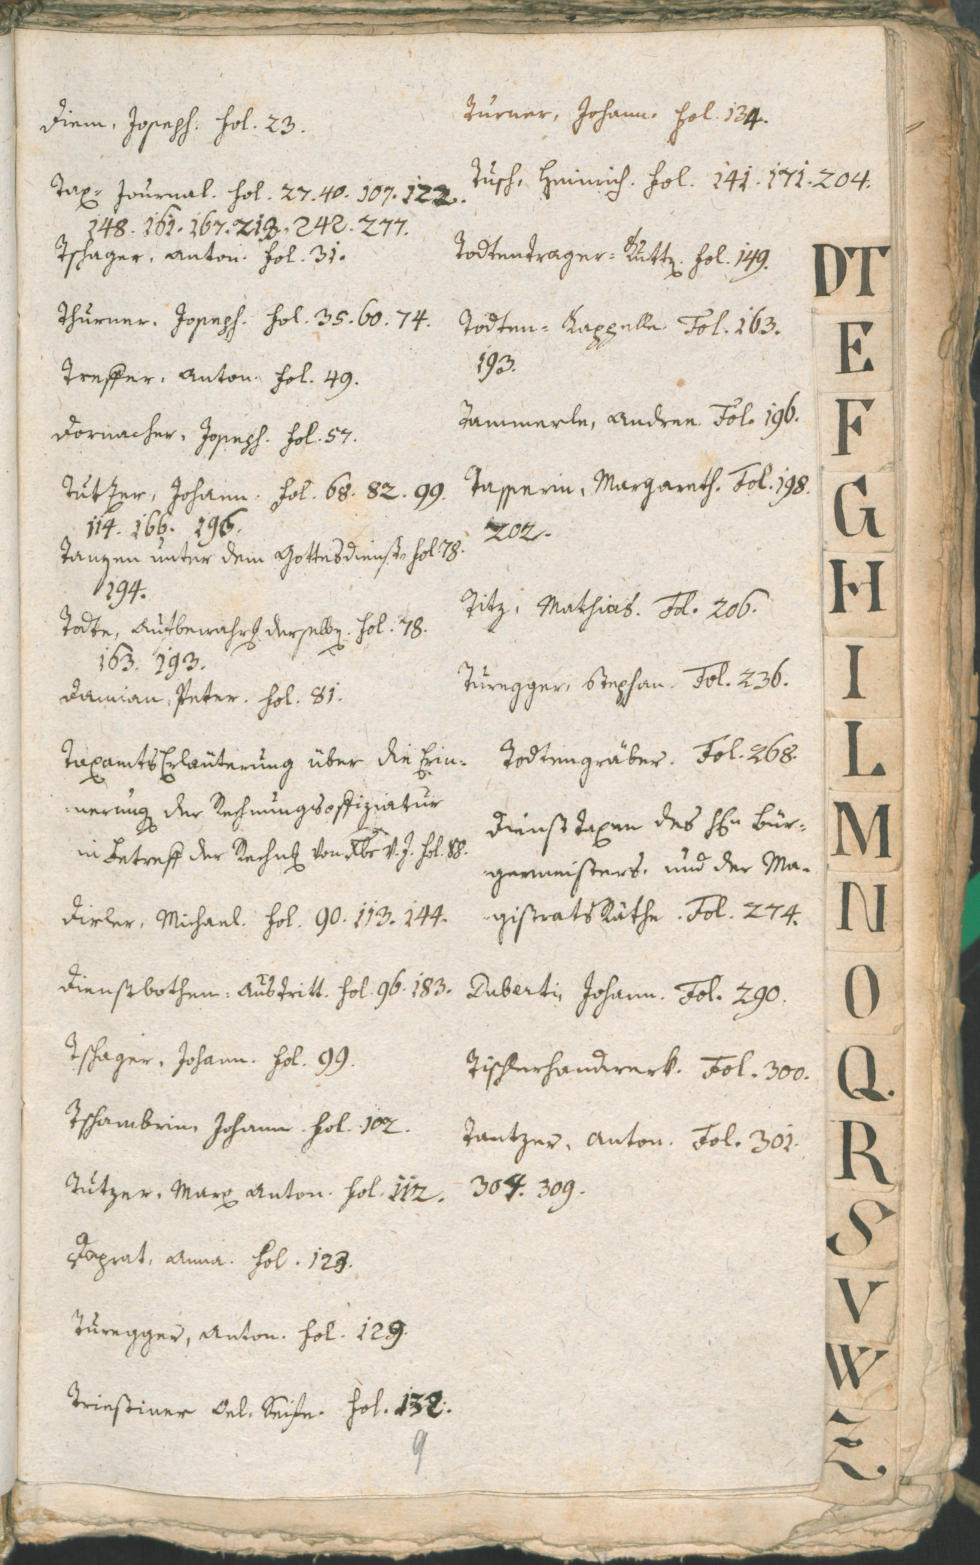 Diem, Joseph. fol. 23.
Tax= Journal. fol. 27. 40. 107. 122.
148. 161. 167. 213. 242. 277.
Tschager, Anton. fol. 31.
Thurner, Joseph. fol. 35. 60. 74.
Treffer, Anton. fol. 49.
Dornacher, Joseph. fol. 57.
Tutzer, Johann. fol. 68. 82. 99.
114. 166. 196.
Tanzen unter dem Gottesdienst fol. 78.
194.
Todte, Aufbewahrg derselbn. fol. 78.
163. 193.
Damian, Peter. fol. 81.
Taxamts Erläuterung über die Erin=
nerung der Rechnungsoffiziatur
in Betreff der Rechng von Xbr v. J. fol. 88.
Dirler, Michael. fol. 90. 113. 144.
Dienstbothen=Austritt. fol. 96. 183.
Tschager, Johann. fol. 99.
Tschambrin, Johann. fol. 102.
Tutzer, Marx Anton. fol. 112.
Daprat, Anna. fol. 123.
Turegger, Anton. fol. 129.
Triestiner Oel=Seife. fol. 132.
9
Turner, Johann. fol. 134.
Tusch, Heinrich. fol. 141. 171. 204.
Todtentrager=Kuttn. fol. 149.
Todten=Kappelle Fol. 163.
193.
Tammerle, Andree Fol. 196.
Tasperin, Margareth. Fol. 198.
202.
Titz, Mathias. Fol. 206.
Turegger, Stephan. Fol. 236.
Todtengräber. Fol. 268.
Diensttaxen des Hn Bür=
germeisters, und der Ma=
gistratsRäthe. Fol. 274.
Duberti, Johann. Fol. 290.
Tischlerhandwerk. Fol. 300.
Tantzer, Anton. Fol. 301.
304. 309.
DT
E
F
G
H
I
L
M
N
O
Q.
R
S
V
W
Z